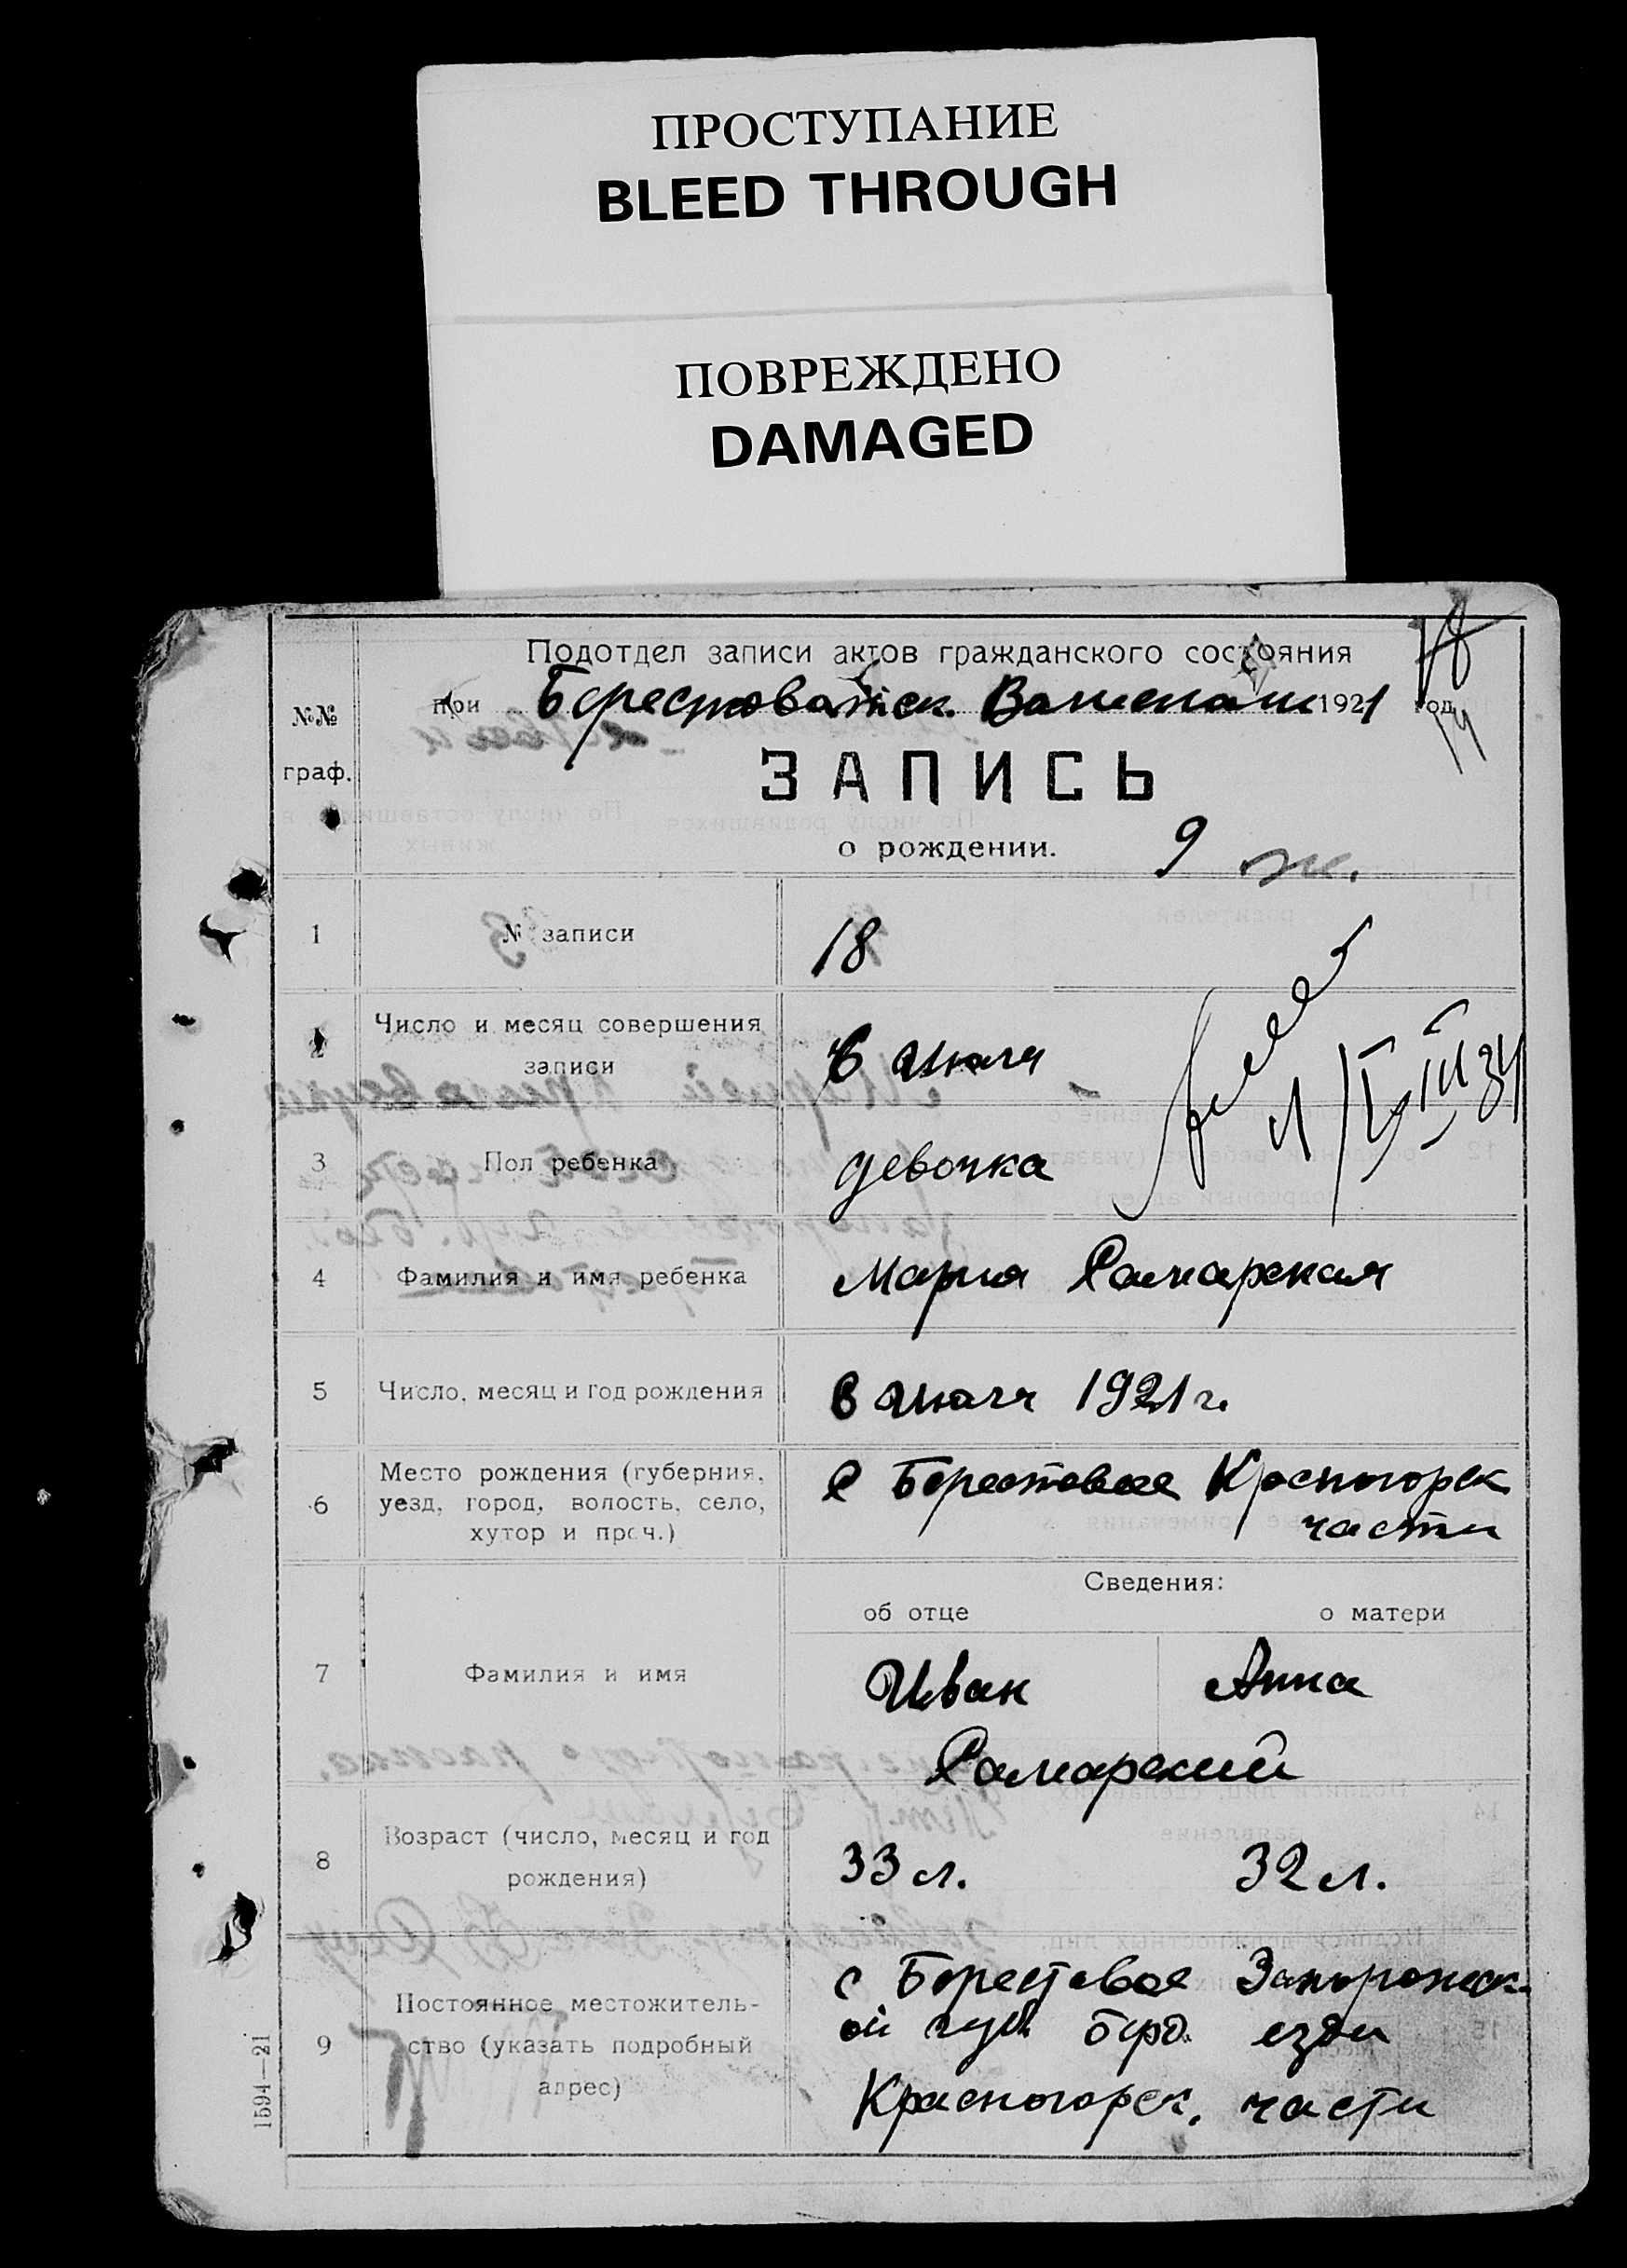 ПРОСТУПАНИЕ
BLEED THROUGH
ПОВРЕЖДЕНО
DAMAGED
Подотдел записи актов гражданского состояния
при Берестоватск. 1921 год
№№ граф.
ЗАПИСЬ
о рождении. 9 ж.
1 № записи 18
2 Число и месяц совершения записи 6 июля
3 Пол ребенка девочка
4 Фамилия и имя ребенка Мария Самарская
5 Число, месяц и год рождения 6 июля 1921 г.
6 Место рождения (губерния, уезд, город, волость, село, хутор и проч.) с Берестовое Красногорск части
Сведения:
об отце о матери
7 Фамилия и имя Иван Анна
Самарский
8 Возраст (число, месяц и год рождения) 33 л. 32 л.
9 Постоянное местожительство (указать подробный адрес) с Берестовое Запорожск-
ой губ. Берд. 
Красногорск. части
1594—21